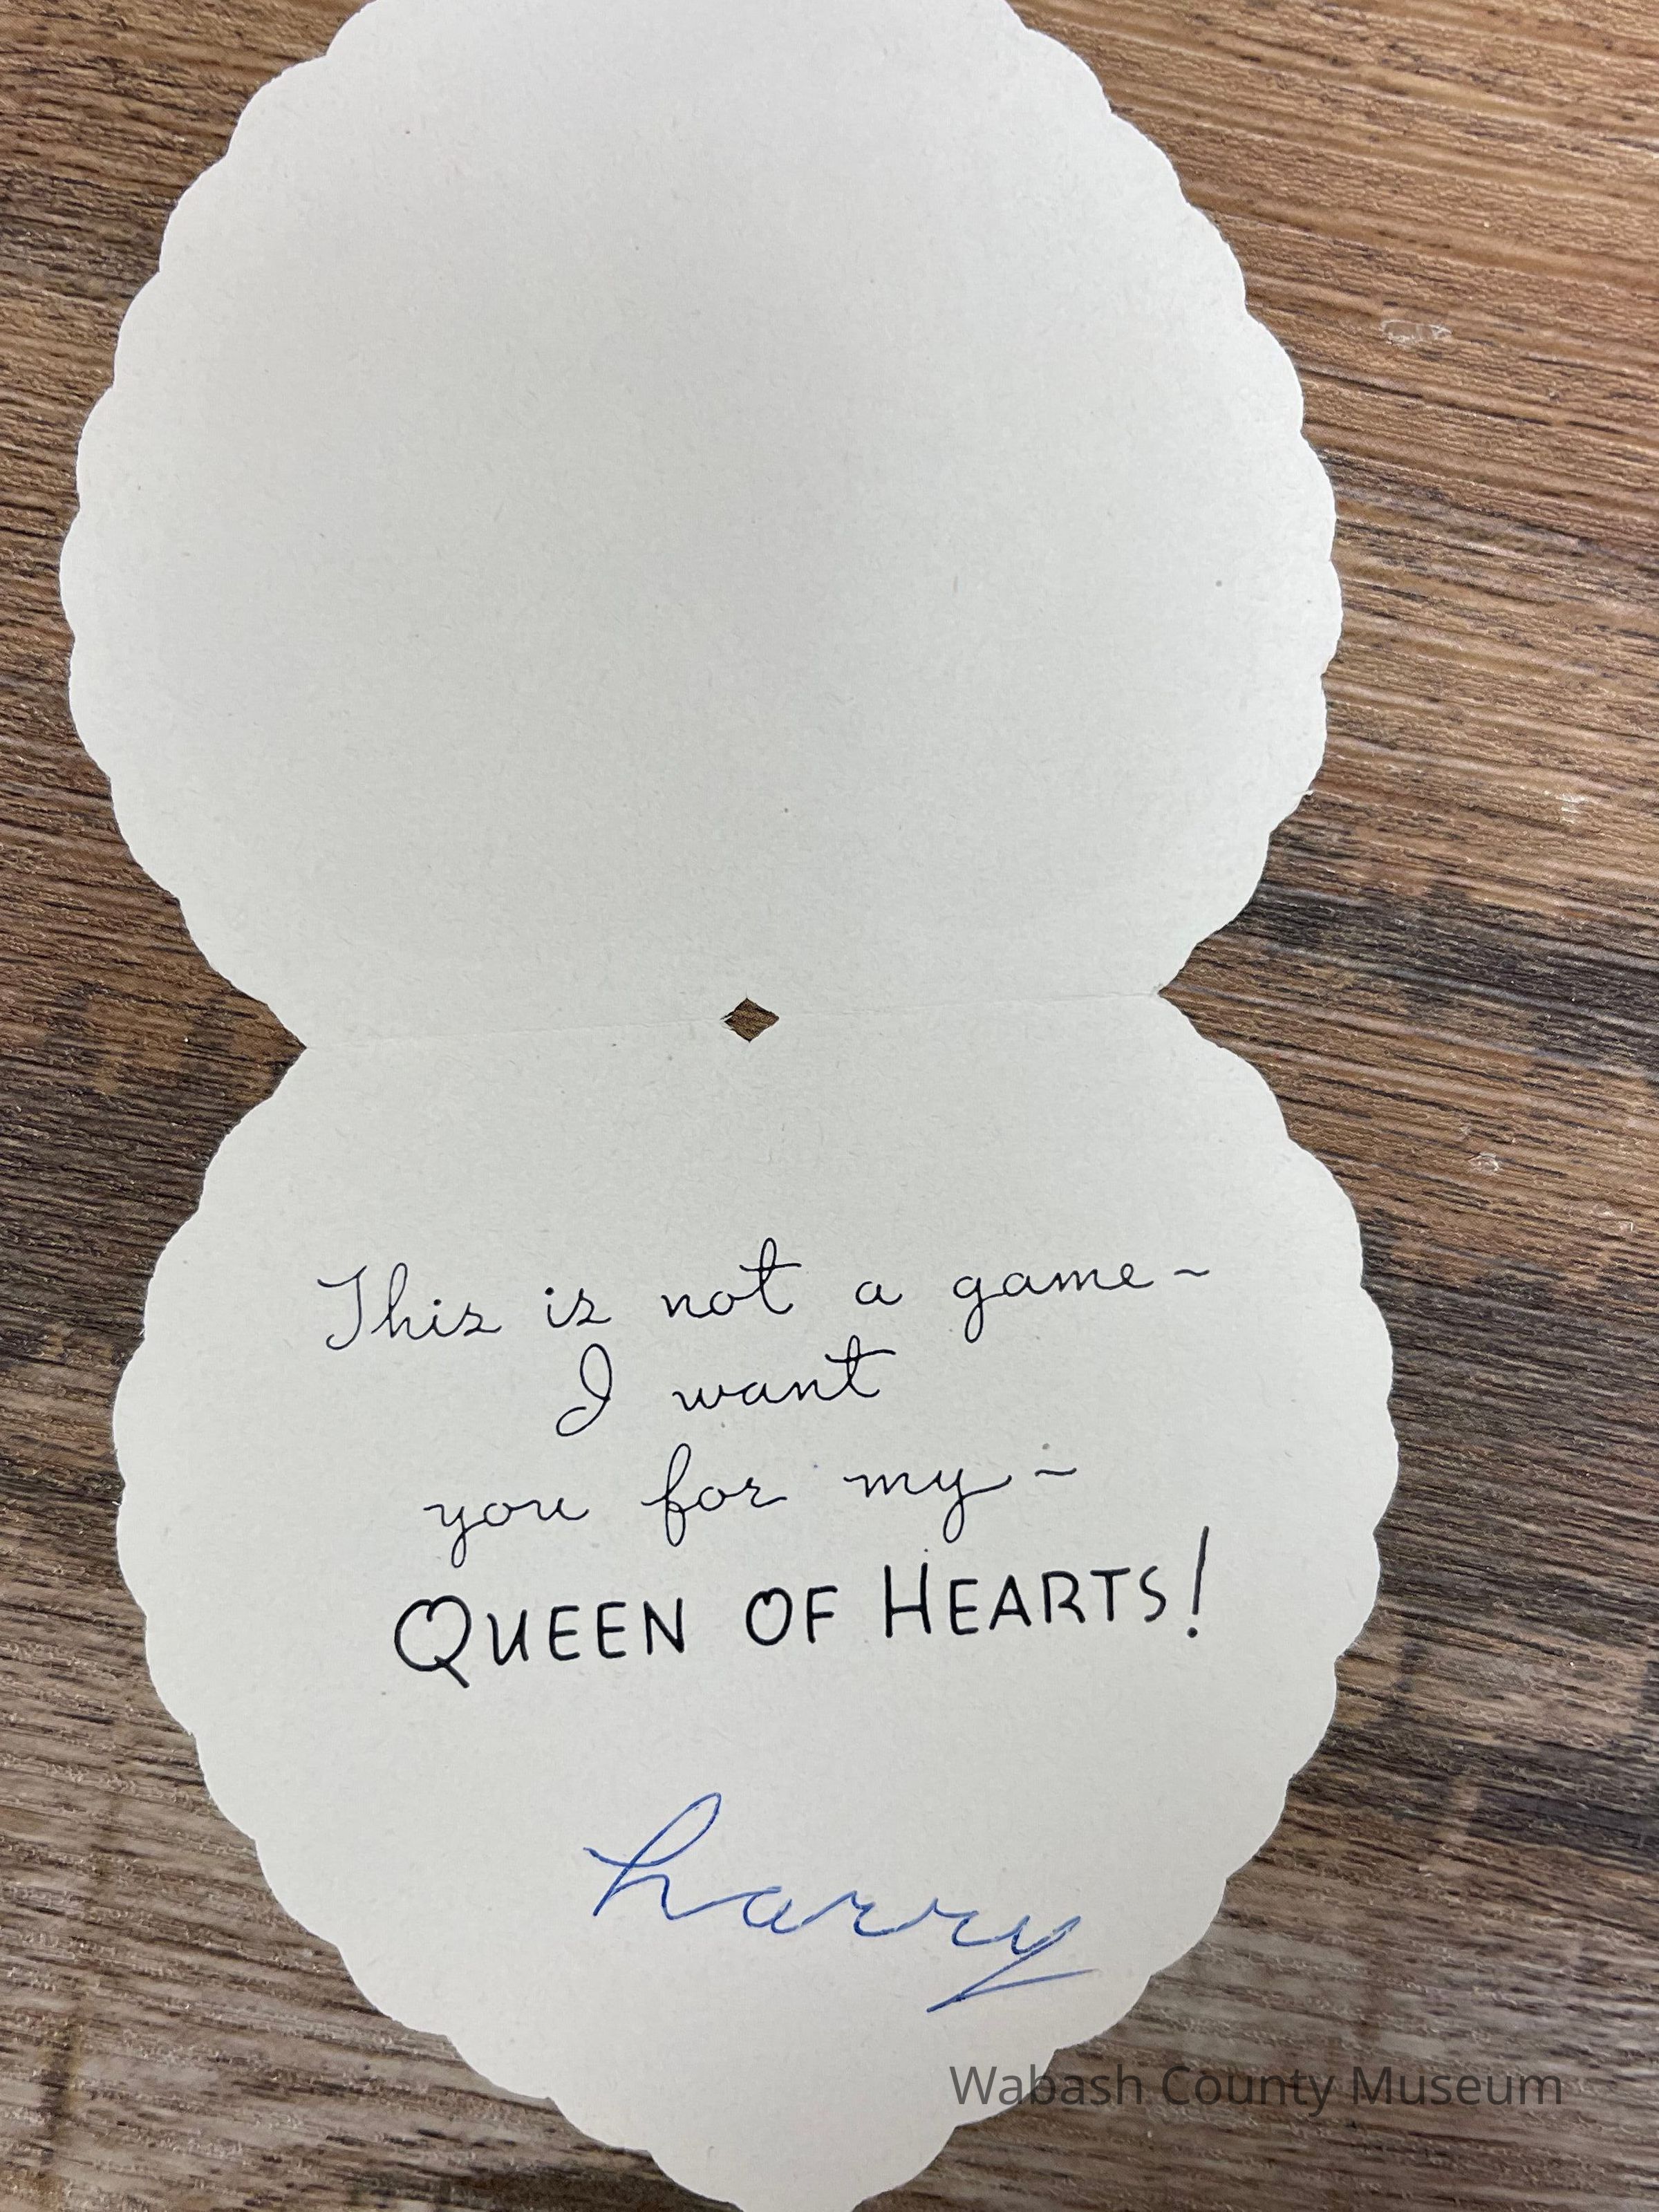 This is not a game~
I want
you for my~
QUEEN OF HEARTS!
harry
Wabash County Museum